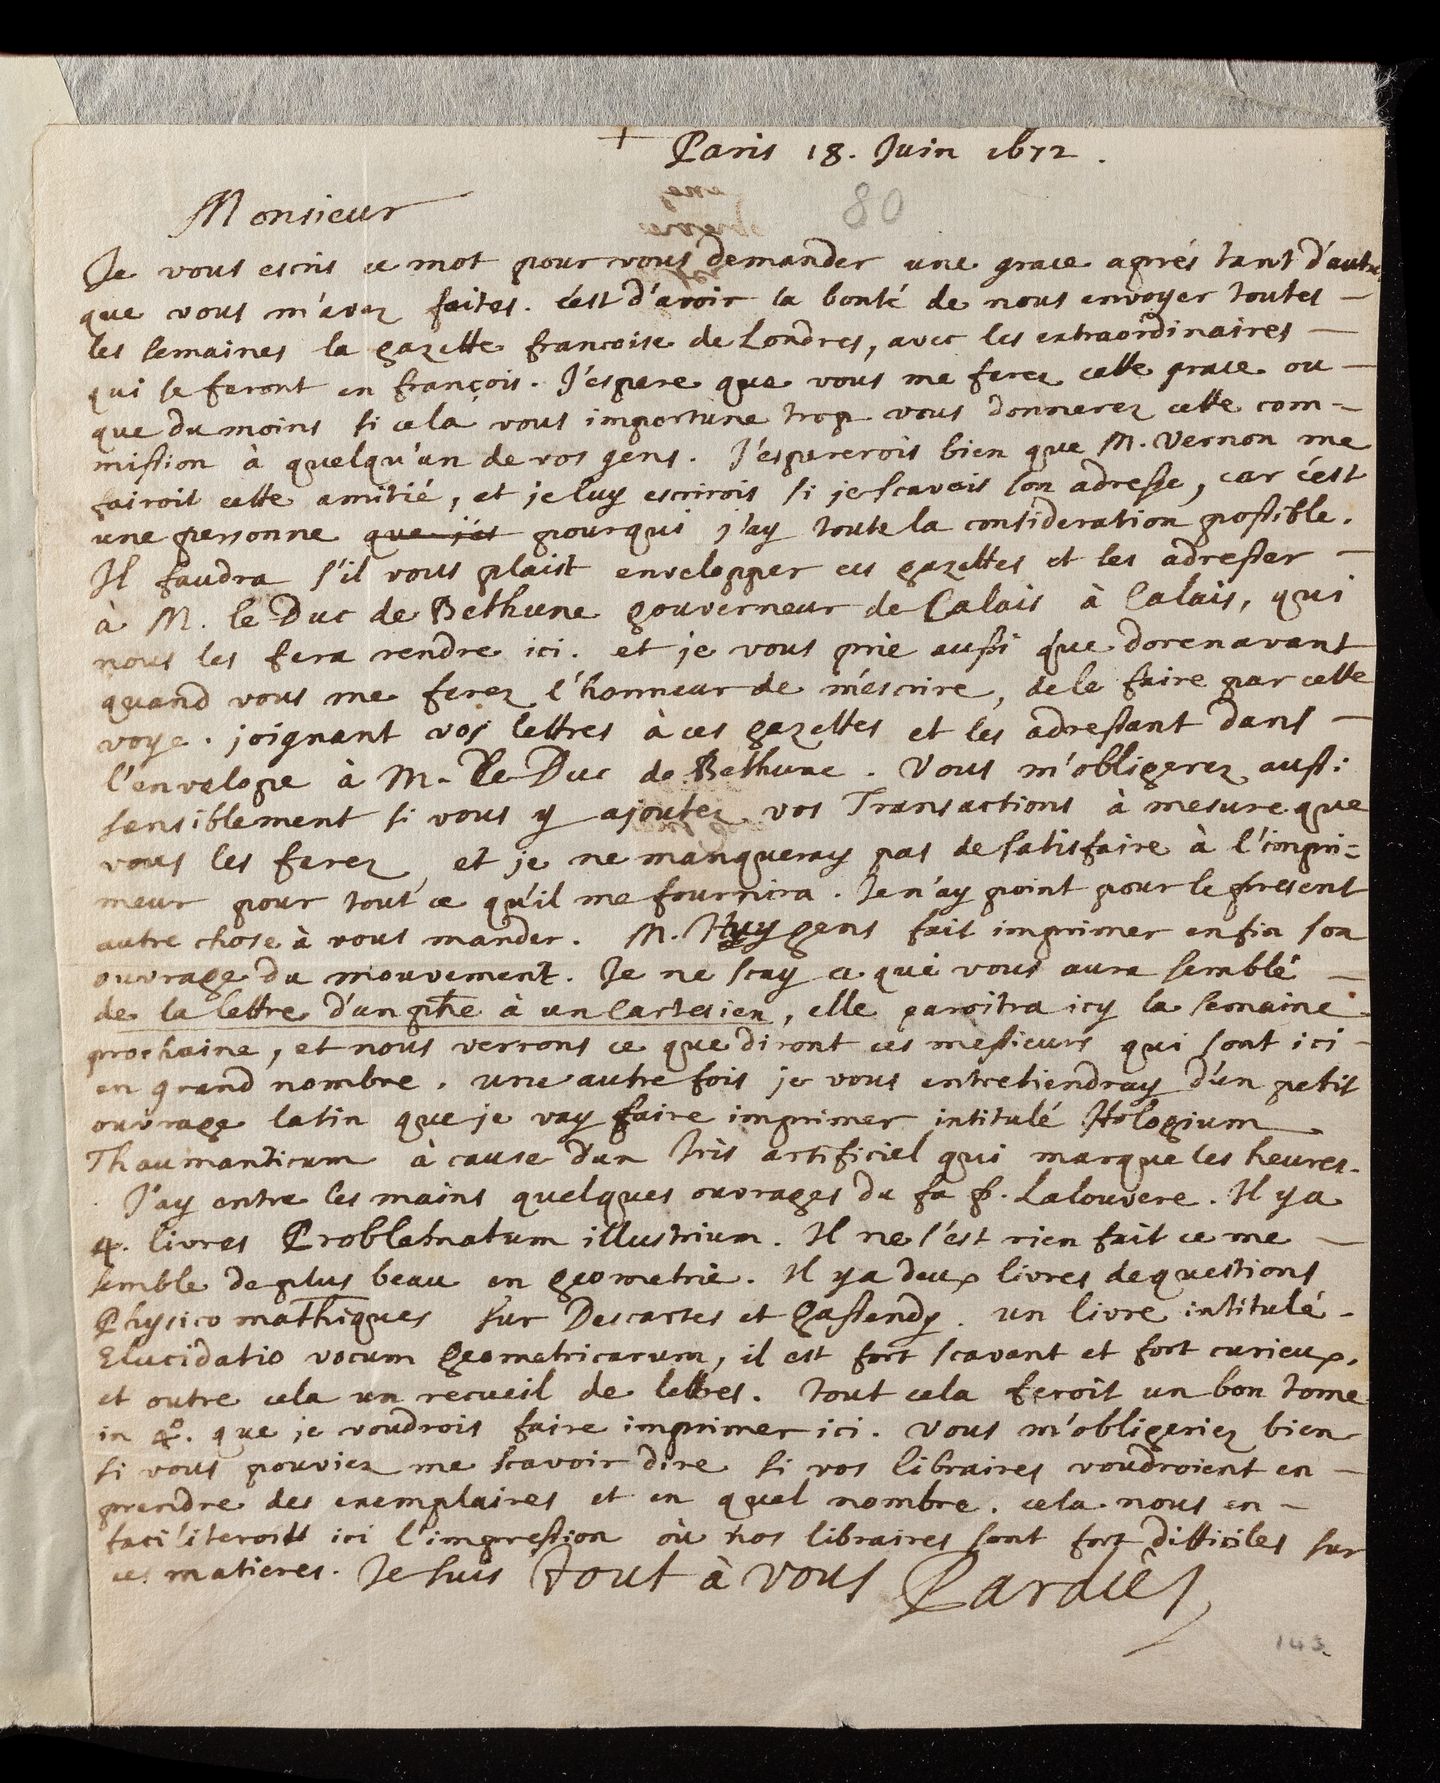 + Paris 18. Juin 1672.
80
Monsieur
Je vous escris ce mot pour vous demander une grace aprés tant d'autres
que vous m'avez faites. c'est d'avoir la bonté de nous envoyer toutes –
les semaines la gazette francoise de Londres, avec les extraordinaires –
qui se feront en françois. J'espere que vous me ferez cette grace ou –
que du moins si cela vous importune trop vous donnerez cette com-
mission à quelqu'un de vos gens. J'espererois bien que M. Vernon me
fairoit cette amitié, et je luy escrirois si je scavois son adresse, car c'est
une personne pour qui j'ay toute la consideration possible.
Il faudra s'il vous plaist envelopper ces gazettes et les adresser –
à M. le Duc de Bethune gouverneur de Calais à Calais, qui
nous les fera rendre ici. et je vous prie aussi que dorenavant
quand vous me ferez l'honneur de m'escrire, de le faire par cette
voye. joignant vos lettres à ces gazettes et les adressant dans –
l'envelope à M. Le Duc de Bethune. Vous m'obligerez aussi
sensiblement si vous y ajoutez vos Transactions à mesure que
vous les ferez, et je ne manqueray pas de satisfaire à l'impri=
meur pour tout ce qu'il me fournira. Je n'ay point pour le present
autre chose à vous mander. M. Huygens fait imprimer enfin son
ouvrage du mouvement. Je ne scay ce que vous aura semblé –
de la lettre d'un phe à un Cartesien, elle paroitra icy la semaine
prochaine, et nous verrons ce que diront ces messieurs qui sont ici –
en grand nombre. une autre fois je vous entretiendray d'un petit
ouvrage latin que je vay faire imprimer intitulé Hologium
Thaumanticum à cause d'un Iris artificiel qui marque les heures.
J'ay entre les mains quelques ouvrages du fu p. Lalouvere. Il y a
4. livres Problematum illustrium. Il ne s'est rien fait ce me –
semble de plus beau en geometrie. Il y a deux livres de questions
Physico mathiques sur Descartes et Gassendy. un livre intitulé –
Elucidatio vocum geometricarum, il est fort scavant et fort curieux.
et outre cela un recueil de lettres. tout cela feroit un bon tome
in 4º. que je voudrois faire imprimer ici. Vous m'obligeriez bien
si vous pouviez me scavoir dire si vos libraires voudroient en –
prendre des exemplaires et en quel nombre. cela nous en –
faciliteroit ici l'impression où nos libraires sont fort difficiles sur
ces matieres. Je suis tout à vous Pardies
143